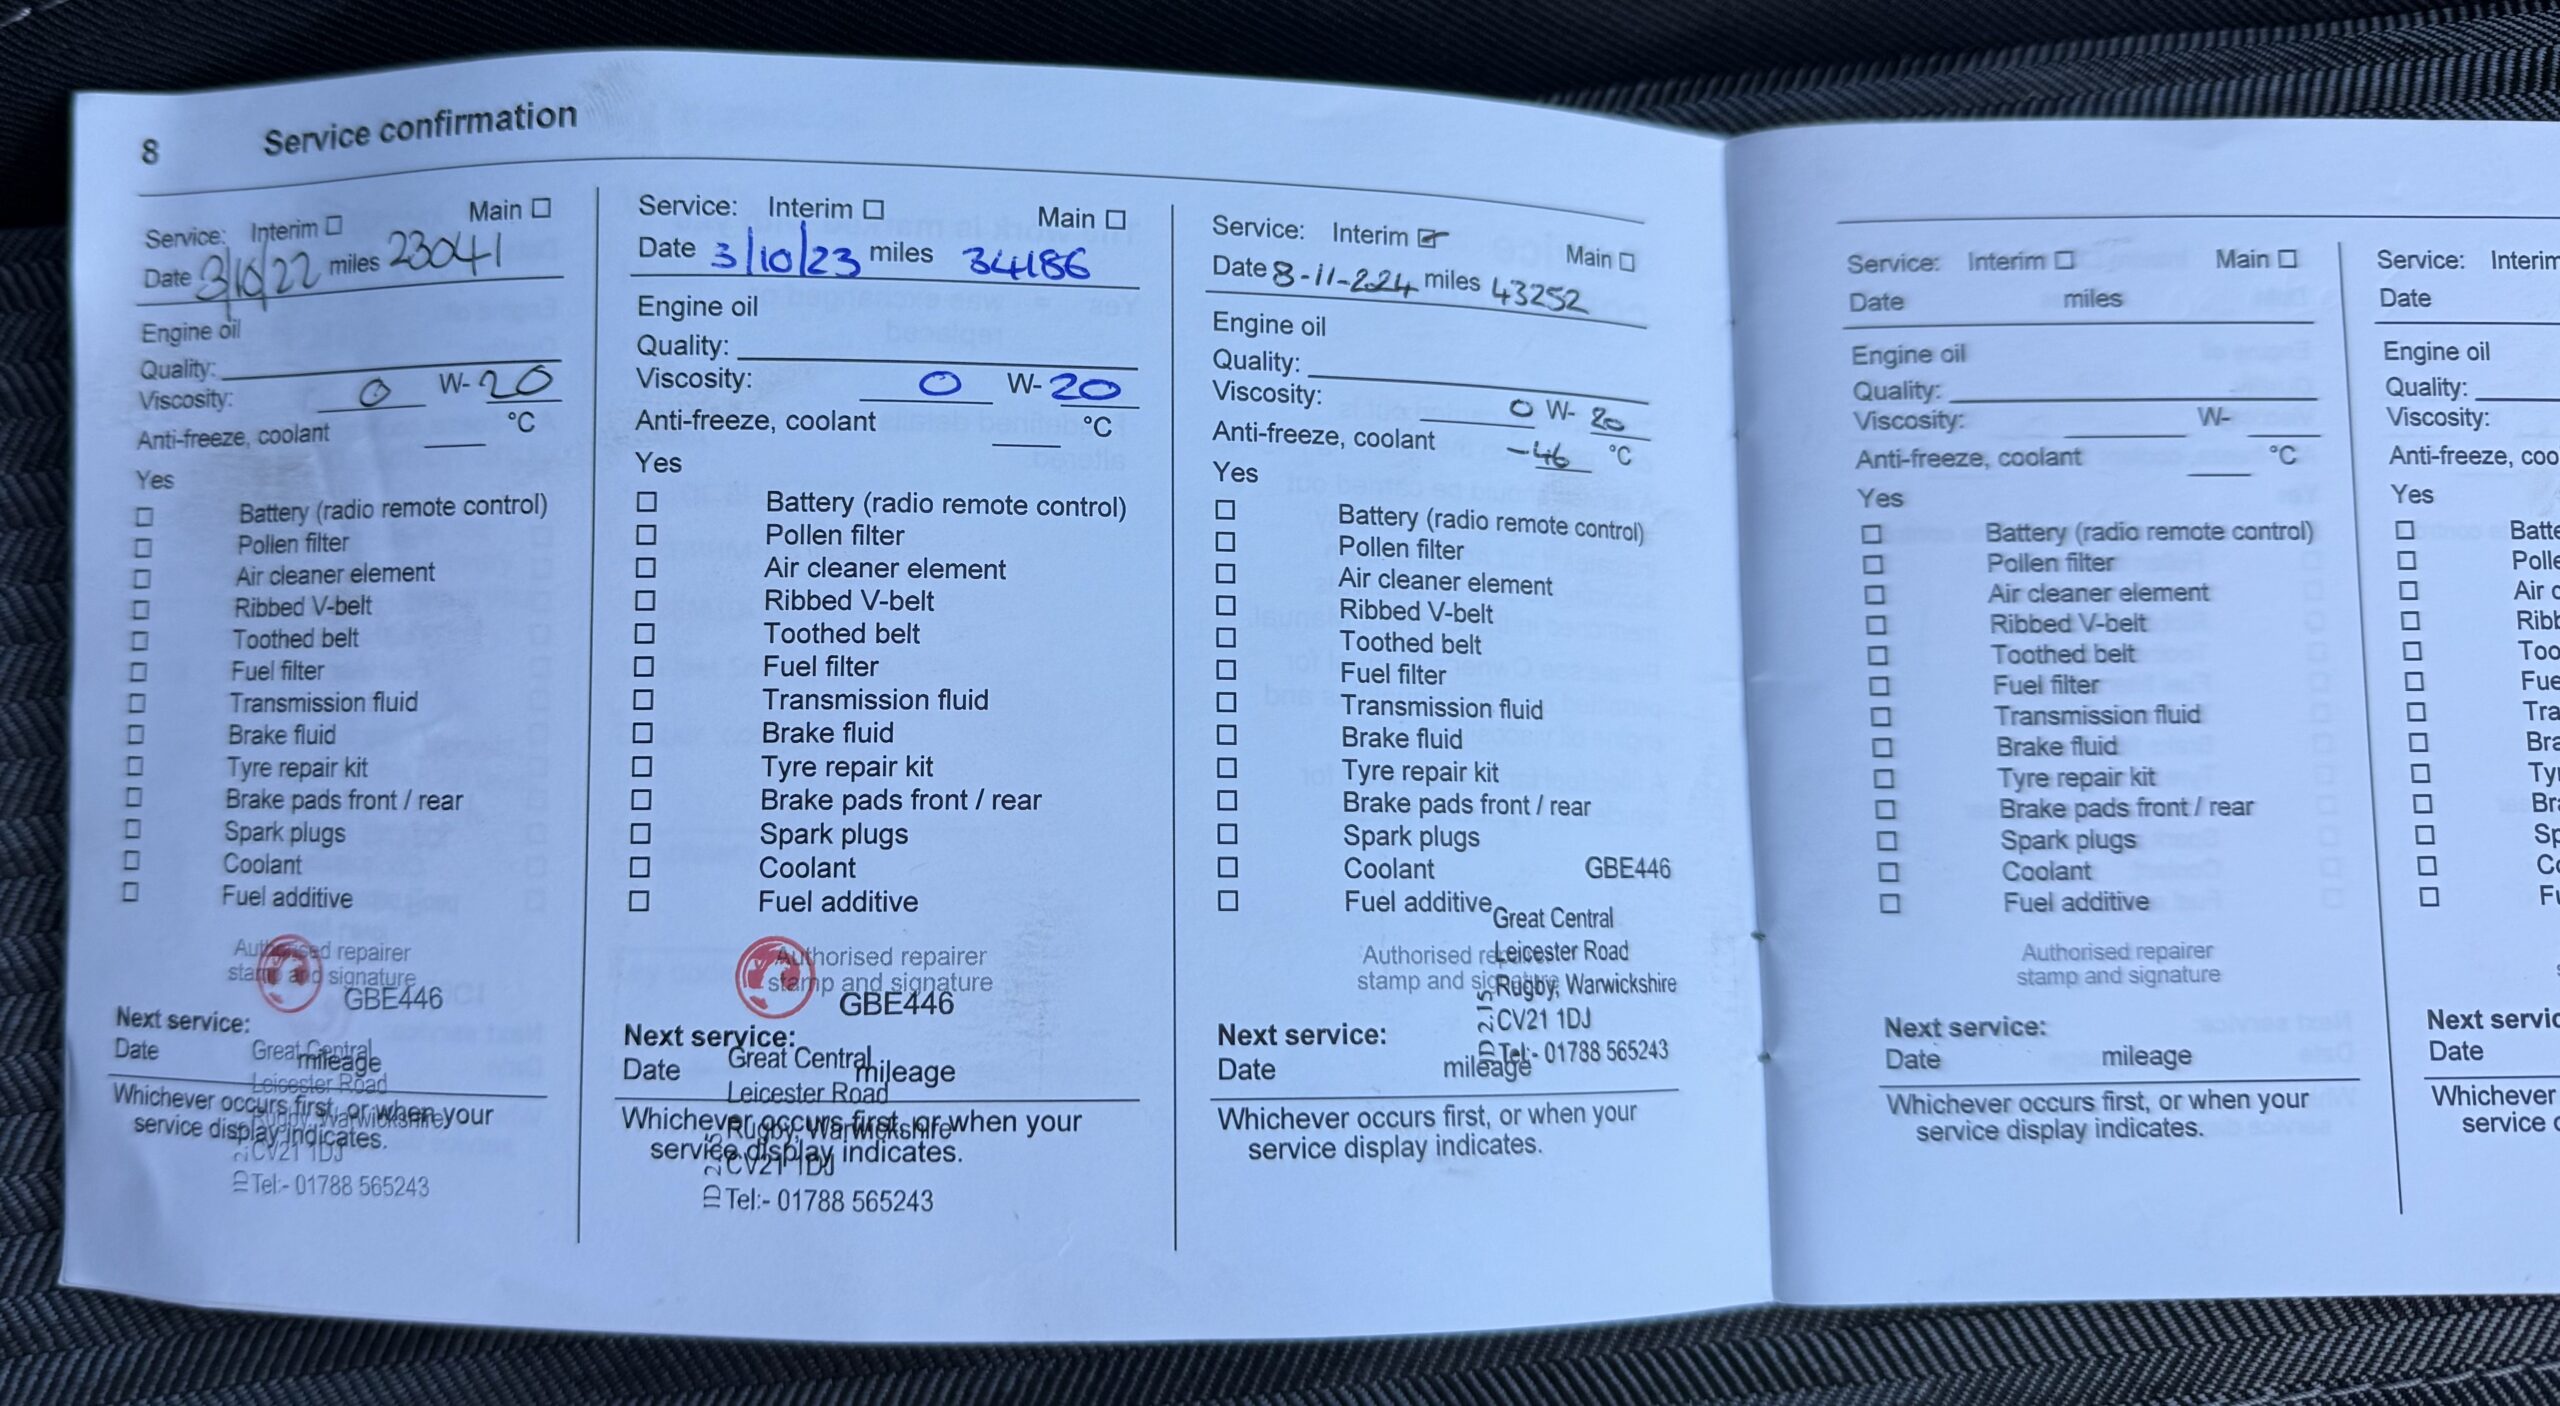 8 Service confirmation
Service: Interim ☐ Main ☐
Date 3/10/22 miles 23041
Engine oil
Quality:
Viscosity: 0 W- 20
Anti-freeze, coolant °C
Yes
☐ Battery (radio remote control)
☐ Pollen filter
☐ Air cleaner element
☐ Ribbed V-belt
☐ Toothed belt
☐ Fuel filter
☐ Transmission fluid
☐ Brake fluid
☐ Tyre repair kit
☐ Brake pads front / rear
☐ Spark plugs
☐ Coolant
☐ Fuel additive
Authorised repairer
stamp and signature
GBE446
Next service:
Date mileage
Great Central
Leicester Road
Rugby, Warwickshire
CV21 1DJ
Tel:- 01788 565243
Whichever occurs first, or when your
service display indicates.
Service: Interim ☐ Main ☐
Date 3/10/23 miles 34186
Engine oil
Quality:
Viscosity: 0 W- 20
Anti-freeze, coolant °C
Yes
☐ Battery (radio remote control)
☐ Pollen filter
☐ Air cleaner element
☐ Ribbed V-belt
☐ Toothed belt
☐ Fuel filter
☐ Transmission fluid
☐ Brake fluid
☐ Tyre repair kit
☐ Brake pads front / rear
☐ Spark plugs
☐ Coolant
☐ Fuel additive
Authorised repairer
stamp and signature
GBE446
Next service:
Date mileage
Great Central
Leicester Road
Rugby, Warwickshire
CV21 1DJ
Tel:- 01788 565243
Whichever occurs first, or when your
service display indicates.
Service: Interim ☑ Main ☐
Date 8-11-224 miles 43252
Engine oil
Quality:
Viscosity: 0 W- 20
Anti-freeze, coolant -46 °C
Yes
☐ Battery (radio remote control)
☐ Pollen filter
☐ Air cleaner element
☐ Ribbed V-belt
☐ Toothed belt
☐ Fuel filter
☐ Transmission fluid
☐ Brake fluid
☐ Tyre repair kit
☐ Brake pads front / rear
☐ Spark plugs
☐ Coolant
☐ Fuel additive
GBE446
Great Central
Leicester Road
Rugby, Warwickshire
CV21 1DJ
Tel:- 01788 565243
Authorised repairer
stamp and signature
Next service:
Date mileage
Whichever occurs first, or when your
service display indicates.
Service: Interim ☐ Main ☐
Date miles
Engine oil
Quality:
Viscosity: W-
Anti-freeze, coolant °C
Yes
☐ Battery (radio remote control)
☐ Pollen filter
☐ Air cleaner element
☐ Ribbed V-belt
☐ Toothed belt
☐ Fuel filter
☐ Transmission fluid
☐ Brake fluid
☐ Tyre repair kit
☐ Brake pads front / rear
☐ Spark plugs
☐ Coolant
☐ Fuel additive
Authorised repairer
stamp and signature
Next service:
Date mileage
Whichever occurs first, or when your
service display indicates.
Service: Interim
Date
Engine oil
Quality:
Viscosity:
Anti-freeze, coo
Yes
☐ Batte
☐ Polle
☐ Air c
☐ Ribb
☐ Too
☐ Fue
☐ Tra
☐ Bra
☐ Ty
☐ Bra
☐ Sp
☐ Co
☐ Fu
Next servic
Date
Whichever
service